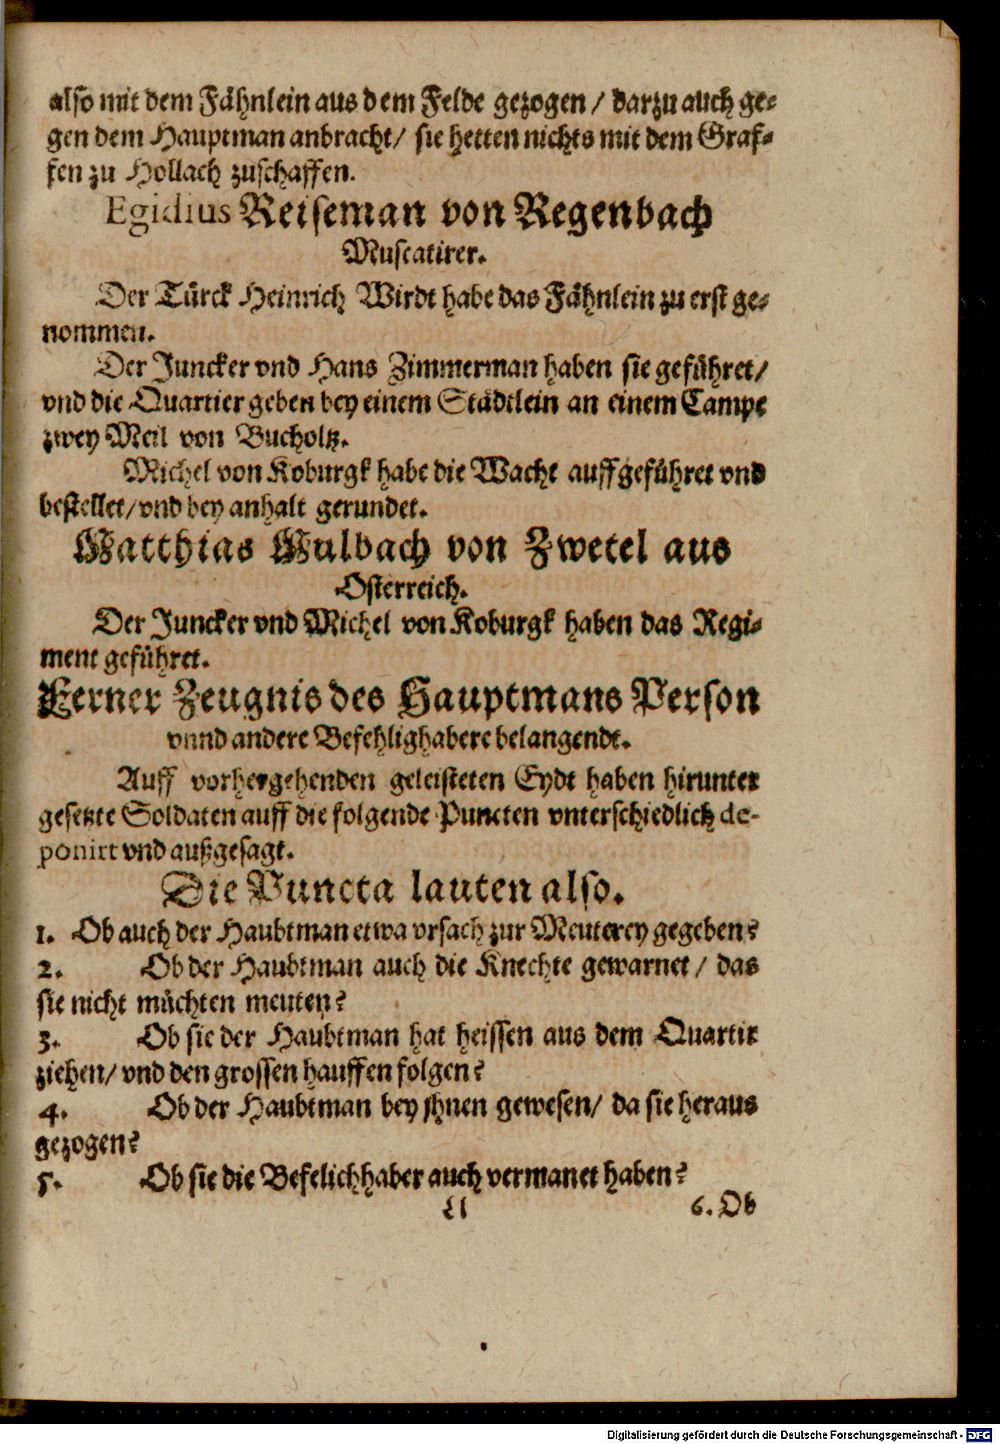 also mit dem Fähnlein aus dem Felde gezogen / darzu auch ge-
gen dem Hauptman anbracht / sie hetten nichts mit dem Graf-
fen zu Hollach zuschaffen.
Egidius Reiseman von Regenbach
Muscatirer.
Der Türck Heinrich Wirdt habe das Fähnlein zu erst ge-
nommen.
Der Juncker vnd Hans Zimmerman haben sie geführet /
vnd die Quartier geben bey einem Städtlein an einem Campe
zwey Meil von Bucholtz.
Michel von Koburgk habe die Wacht auffgeführet vnd
bestellet / vnd bey anhalt gerundet.
Matthias Mulbach von Zwetel aus
Osterreich.
Der Juncker vnd Michel von Koburgk haben das Regi-
ment geführet.
Ferner Zeugnis des Hauptmans Person
vnnd andere Befehlighabere belangendt.
Auff vorhergehenden geleisteten Eydt haben hirunter
gesetzte Soldaten auff die folgende Puncten vnterschiedlich de-
ponirt vnd außgesagt.
Die Puncta lauten also.
1. Ob auch der Haubtman etwa vrsach zur Meuterey gegeben?
2. Ob der Haubtman auch die Knechte gewarnet / das
sie nicht müchten meuten?
3. Ob sie der Haubtman hat heissen aus dem Quartir
ziehen / vnd den grossen hauffen folgen?
4. Ob der Haubtman bey ihnen gewesen / da sie heraus
gezogen?
5. Ob sie die Befelichhaber auch vermanet haben?
6. Ob
Digitalisierung gefördert durch die Deutsche Forschungsgemeinschaft - DFG